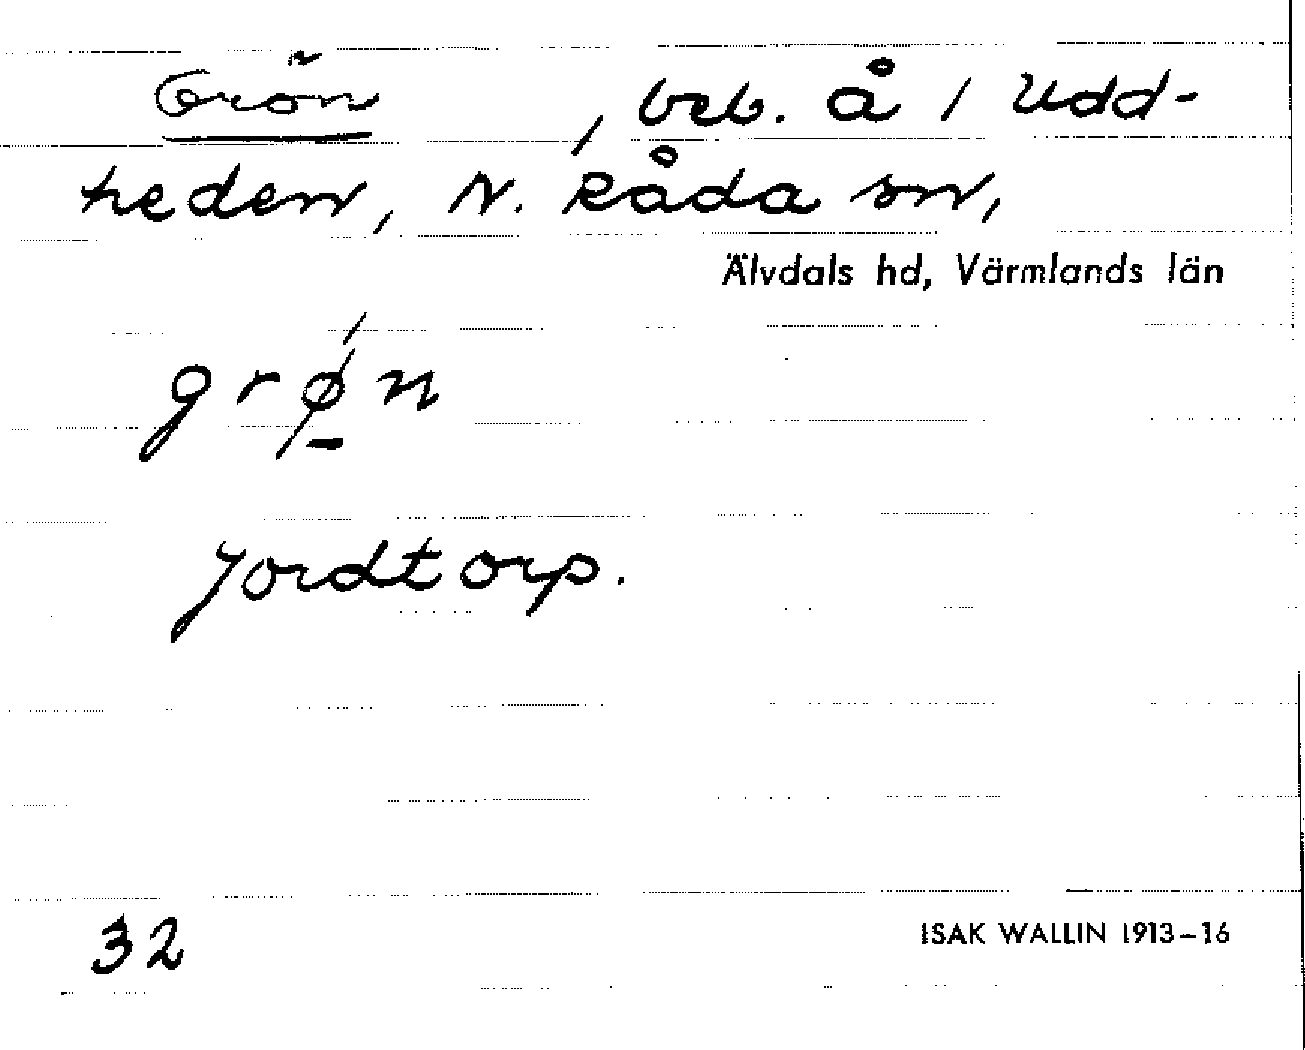 Grön, beb. å 1 Udd-
heden, N. Råda sn,
Älvdals hd, Värmlands län
grǿ̠n
Jordtorp.
32
ISAK WALLIN 1913–16